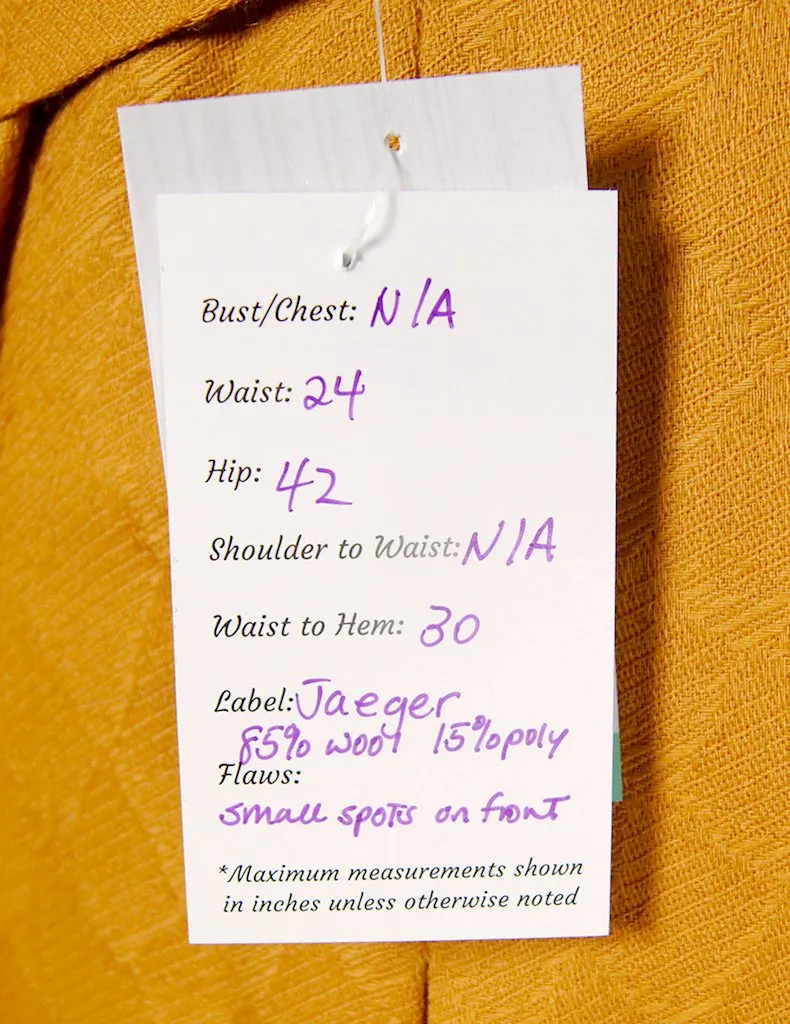 Bust/Chest: N/A
Waist: 24
Hip: 42
Shoulder to Waist: N/A
Waist to Hem: 30
Label: Jaeger
85% wool 15% poly
Flaws:
small spots on front
*Maximum measurements shown
in inches unless otherwise noted